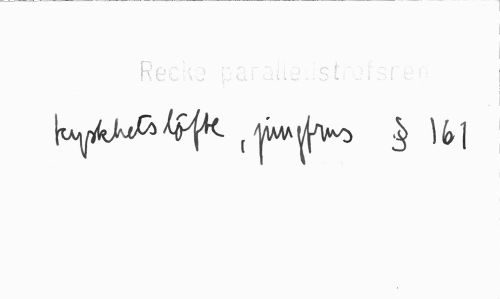 Recke parallellstrofsren
kyskhetslöfte, jungfrus § 161